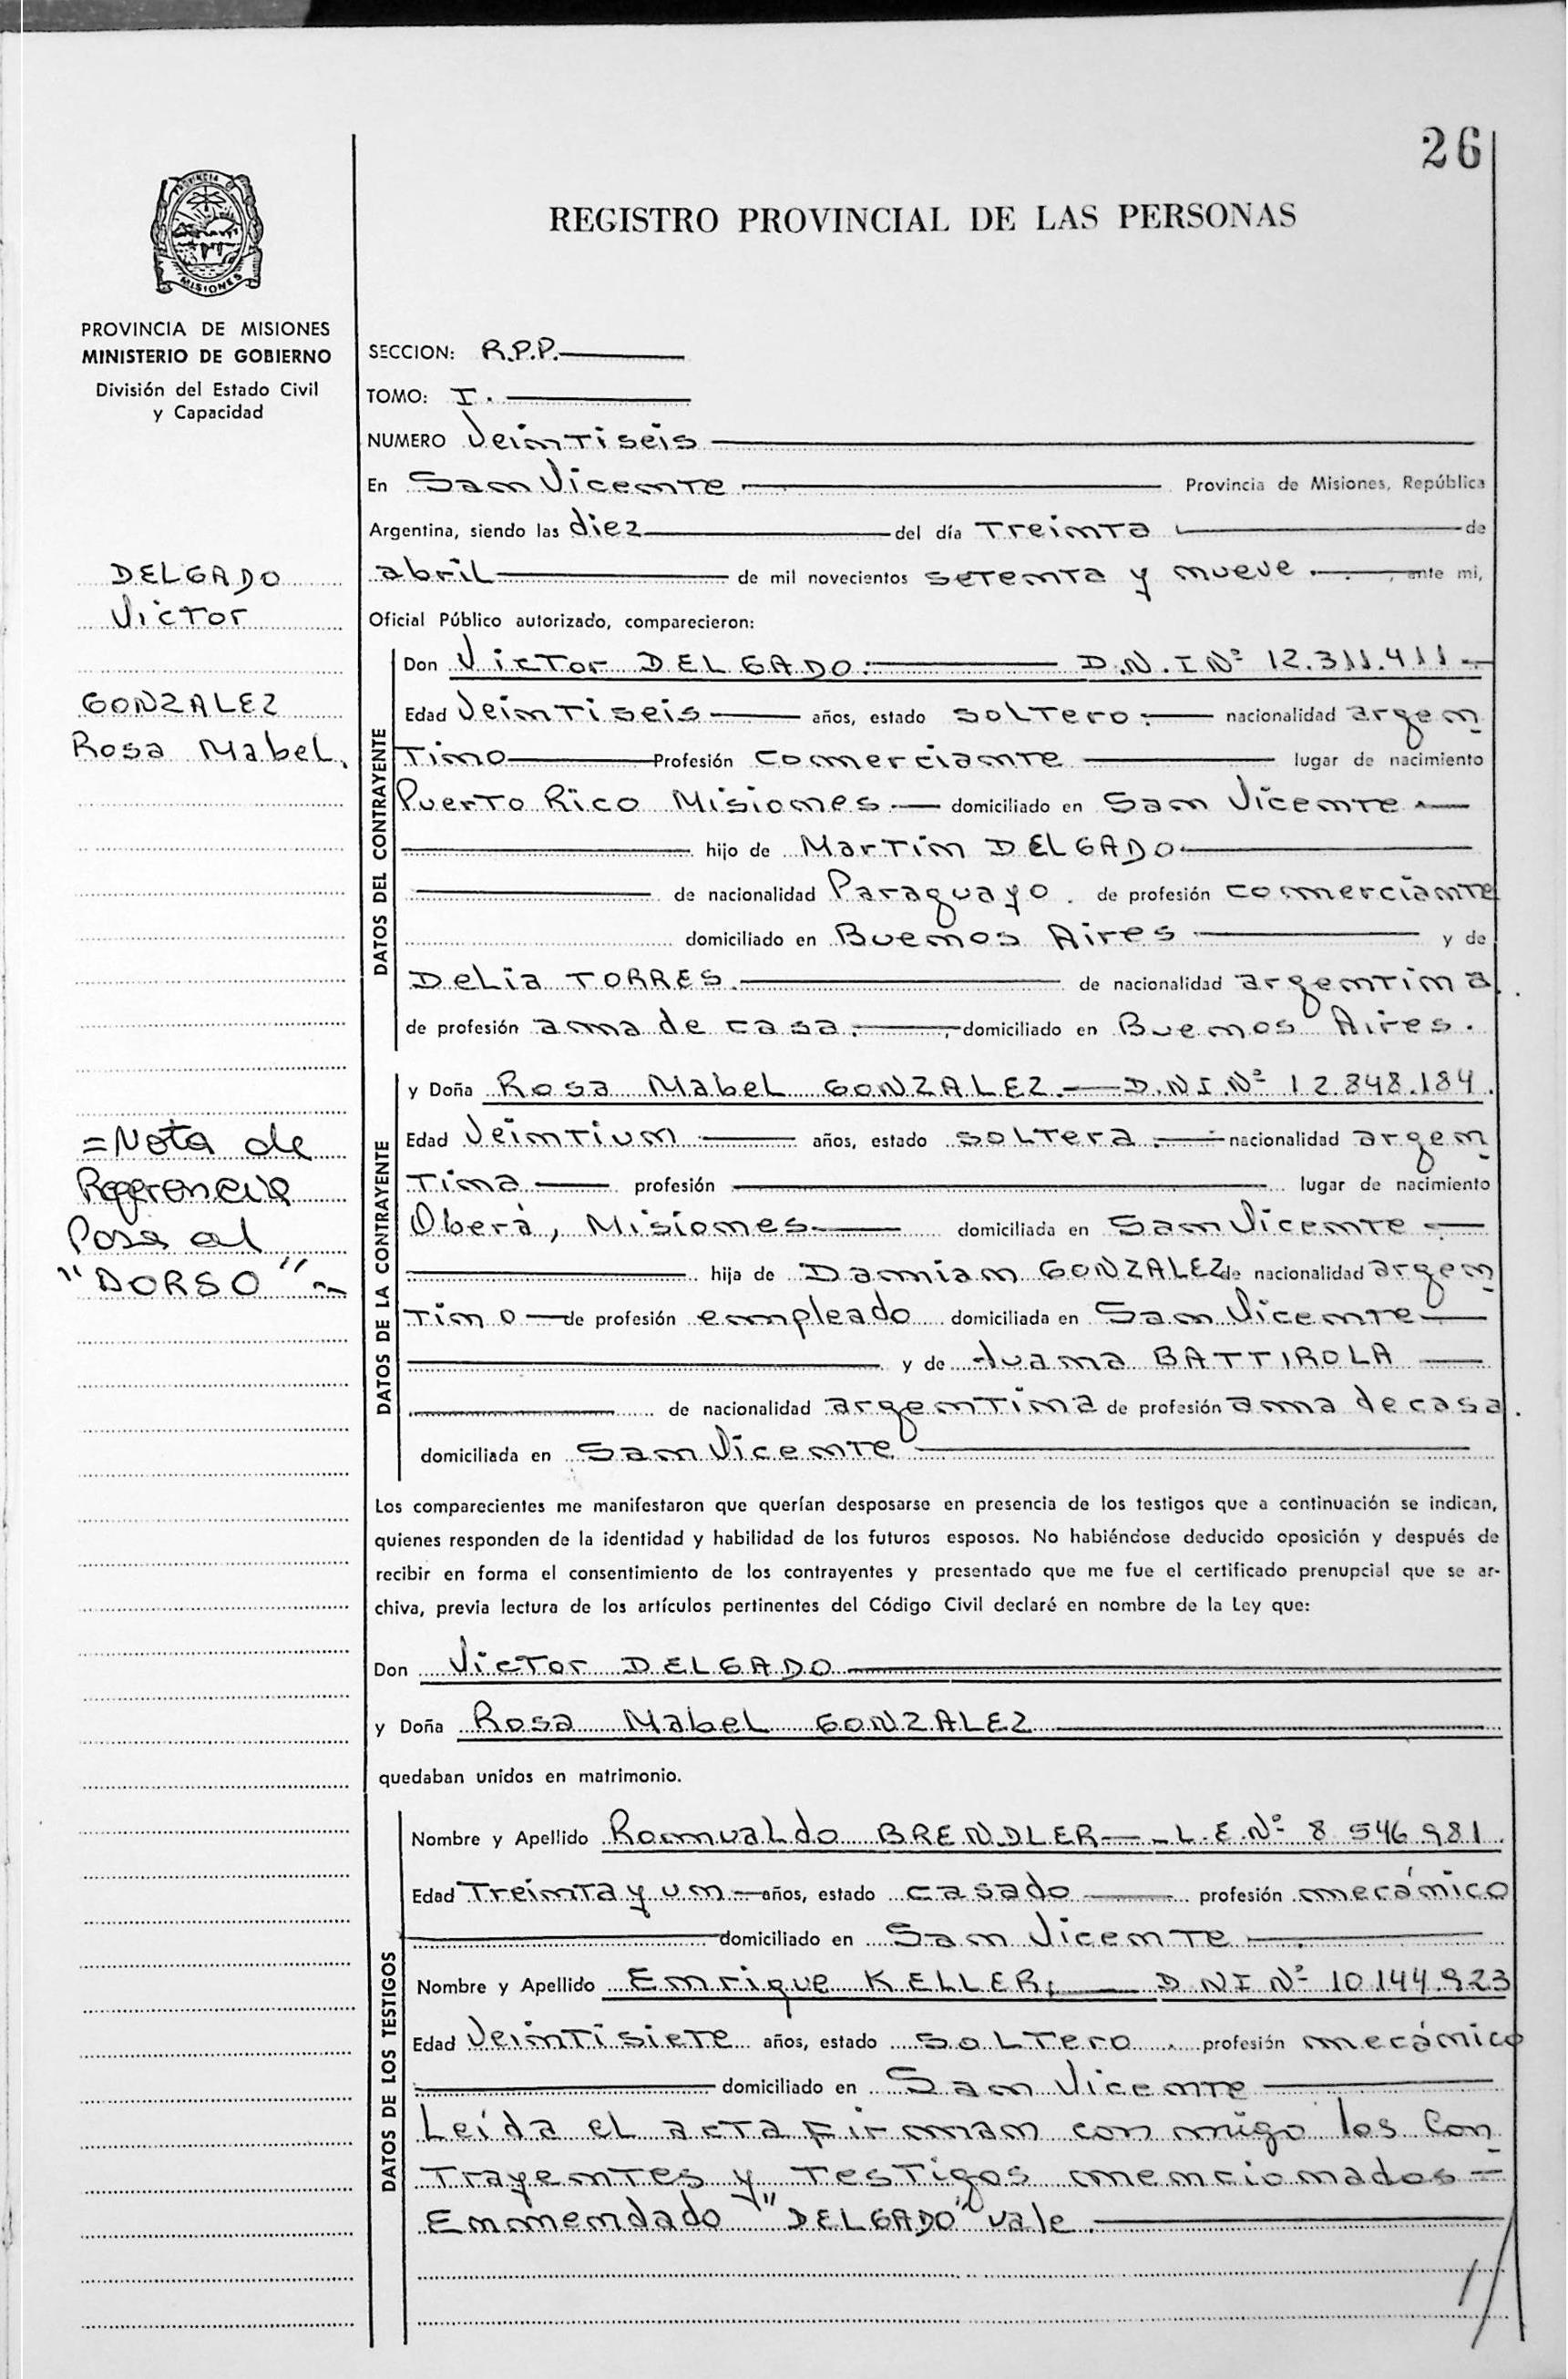 26
REGISTRO PROVINCIAL DE LAS PERSONAS
PROVINCIA
MISIONES
PROVINCIA DE MISIONES
MINISTERIO DE GOBIERNO
División del Estado Civil
y Capacidad
DELGADO
Victor
GONZALEZ
Rosa Mabel.
=Nota de
Referencia
Pasa al
"DORSO"
SECCION: R.P.P.
TOMO: I.
NUMERO Veintiseis
En San Vicente Provincia de Misiones, República
Argentina, siendo las diez del día Treinta de
abril de mil novecientos setenta y nueve. ante mi,
Oficial Público autorizado, comparecieron:
DATOS DEL CONTRAYENTE
Don Victor DELGADO. D.N.I Nº 12.311.411
Edad Veintiseis años, estado soltero. nacionalidad argen
tino Profesión comerciante lugar de nacimiento
Puerto Rico Misiones. domiciliado en San Vicente.
hijo de Martin DELGADO.
de nacionalidad Paraguayo. de profesión comerciante
domiciliado en Buenos Aires y de
Delia TORRES. de nacionalidad argentina.
de profesión ama de casa. domiciliado en Buenos Aires.
DATOS DE LA CONTRAYENTE
y Doña Rosa Mabel GONZALEZ. D.N.I.Nº 12.848.184.
Edad Veintiun años, estado soltera. nacionalidad argen
tina profesión lugar de nacimiento
Oberá, Misiones. domiciliada en San Vicente.
hija de Damian GONZALEZ de nacionalidad argen
tino de profesión empleado domiciliada en San Vicente
y de Juana BATTIROLA
de nacionalidad argentina de profesión ama de casa.
domiciliada en San Vicente
Los comparecientes me manifestaron que querían desposarse en presencia de los testigos que a continuación se indican,
quienes responden de la identidad y habilidad de los futuros esposos. No habiéndose deducido oposición y después de
recibir en forma el consentimiento de los contrayentes y presentado que me fue el certificado prenupcial que se ar-
chiva, previa lectura de los artículos pertinentes del Código Civil declaré en nombre de la Ley que:
Don Victor DELGADO
y Doña Rosa Mabel GONZALEZ
quedaban unidos en matrimonio.
DATOS DE LOS TESTIGOS
Nombre y Apellido Romualdo BRENDLER L.E.Nº 8 546 981.
Edad Treinta y un años, estado casado profesión mecánico
domiciliado en San Vicente
Nombre y Apellido Enrique KELLER; D NI Nº 10.144.923
Edad Veintisiete años, estado soltero. profesión mecánico
domiciliado en San Vicente
Leída el acta firman con migo los Con
trayentes y testigos mencionados=
Enmendado "DELGADO" vale.
//